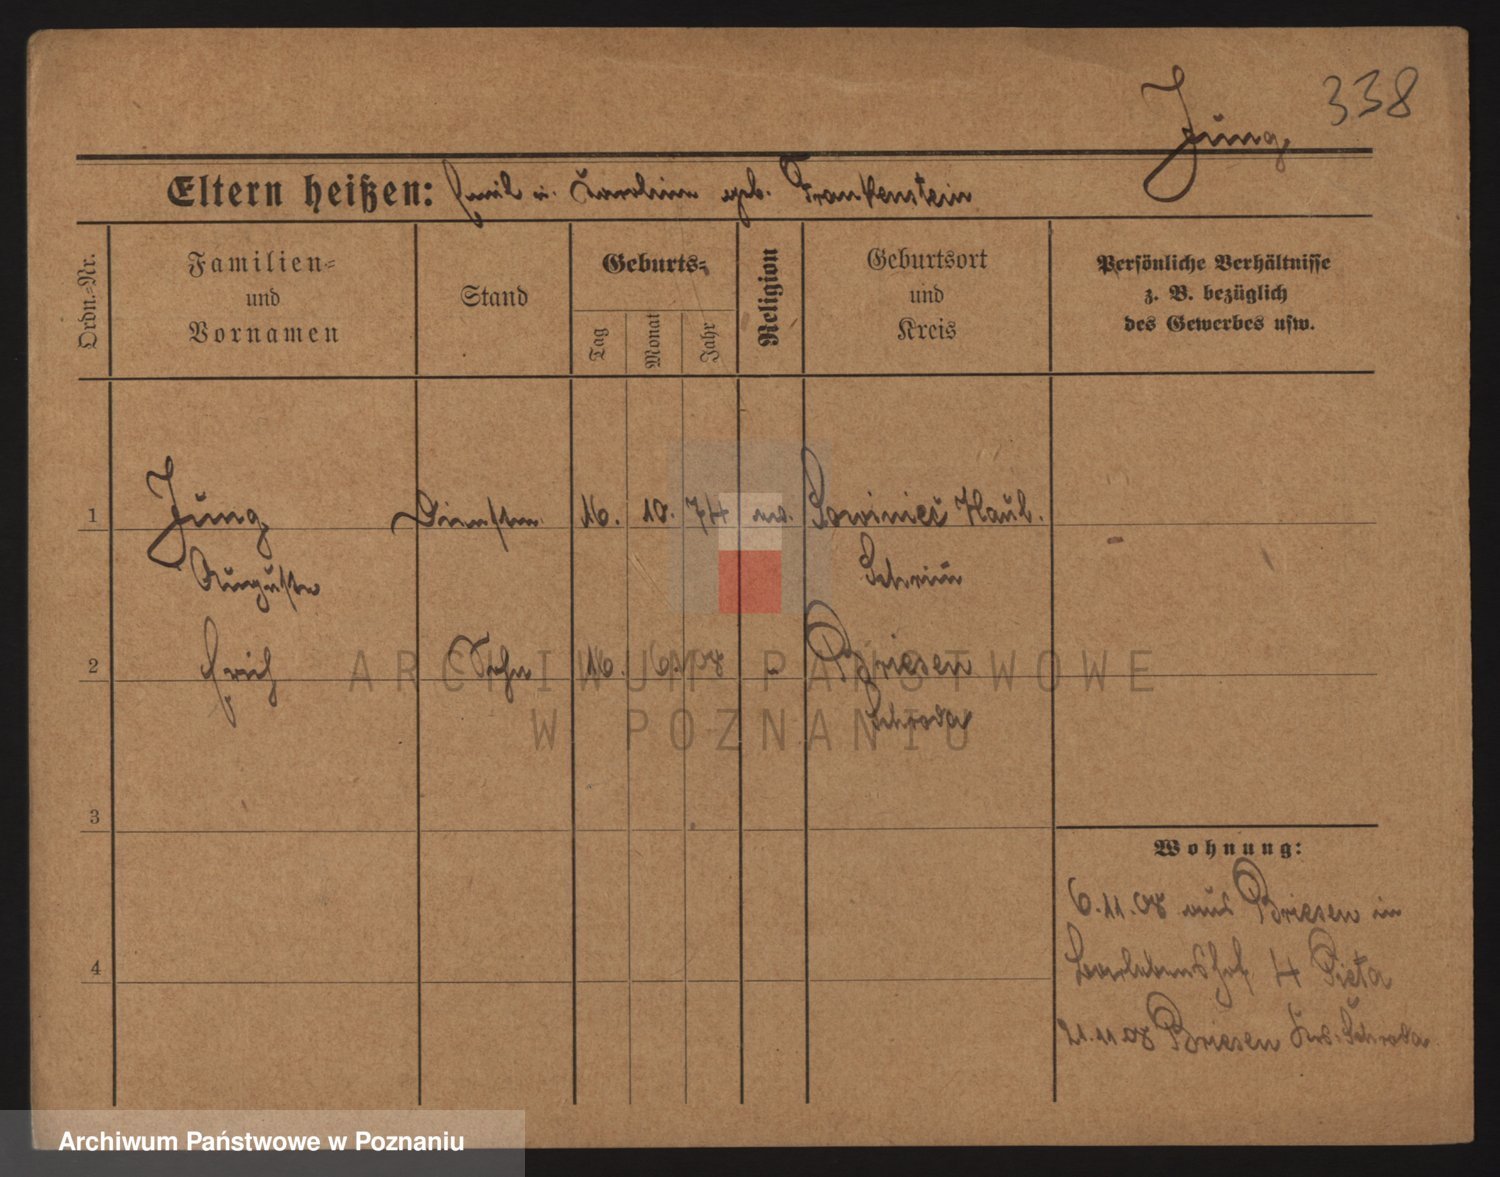 338
Jung
Eltern heißen: Emil u. Karoline geb. Frankenstein
Ordn.=Nr.
Familien=
und
Vornamen
Stand
Geburts=
Tag
Monat
Jahr
Religion
Geburtsort
und
Kreis
Persönliche Verhältnisse
z. B. bezüglich
des Gewerbes usw.
1 Jung Dienstm. 16. 10. 74 ev. Haul.
Auguste Schrim
2 Erich Sohn 16. 6. 08 - Briesen
Schroda
3
4
Wohnung:
6.11.08 aus Briesen in
4 Pieta
21.11.08 Briesen Krs. Schroda
ARCHIWUM PAŃSTWOWE
W POZNANIU
Archiwum Państwowe w Poznaniu